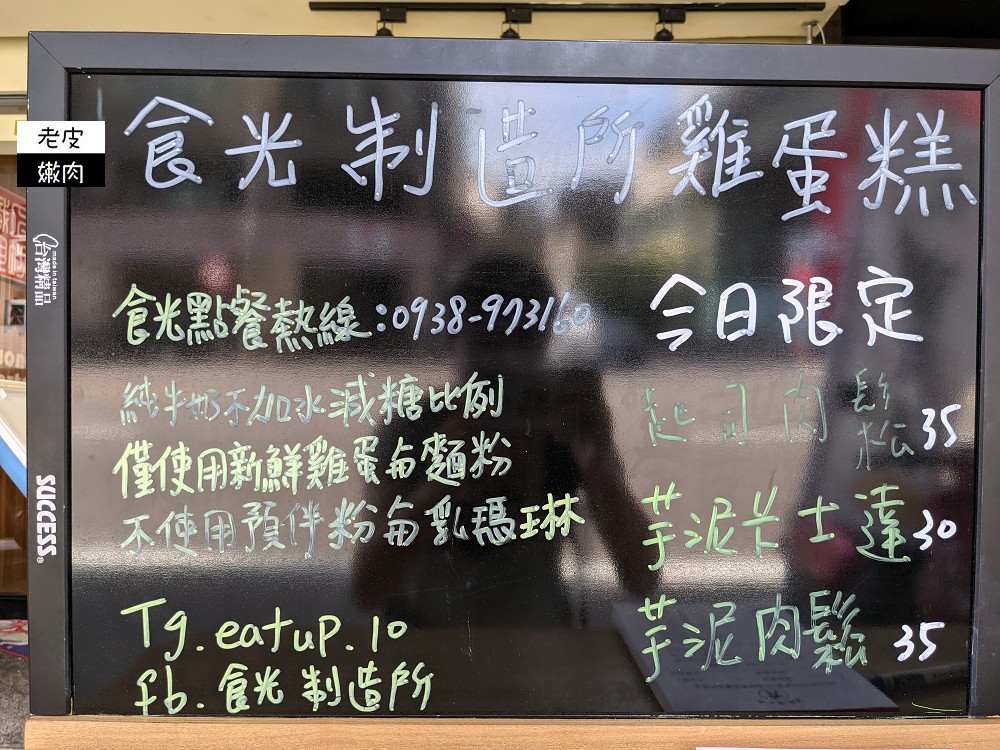 食光制造所雞蛋糕
老皮
嫩肉
made in taiwan
台灣精品
SUCCESS®
食光點餐熱線:0938-973160
純牛奶不加水減糖比例
僅使用新鮮雞蛋侖麵粉
不使用預伴粉侖乳瑪琳
Tg.eatup.10
fb.食光制造所
今日限定
起司肉鬆35
芋泥卡士達30
芋泥肉鬆 35